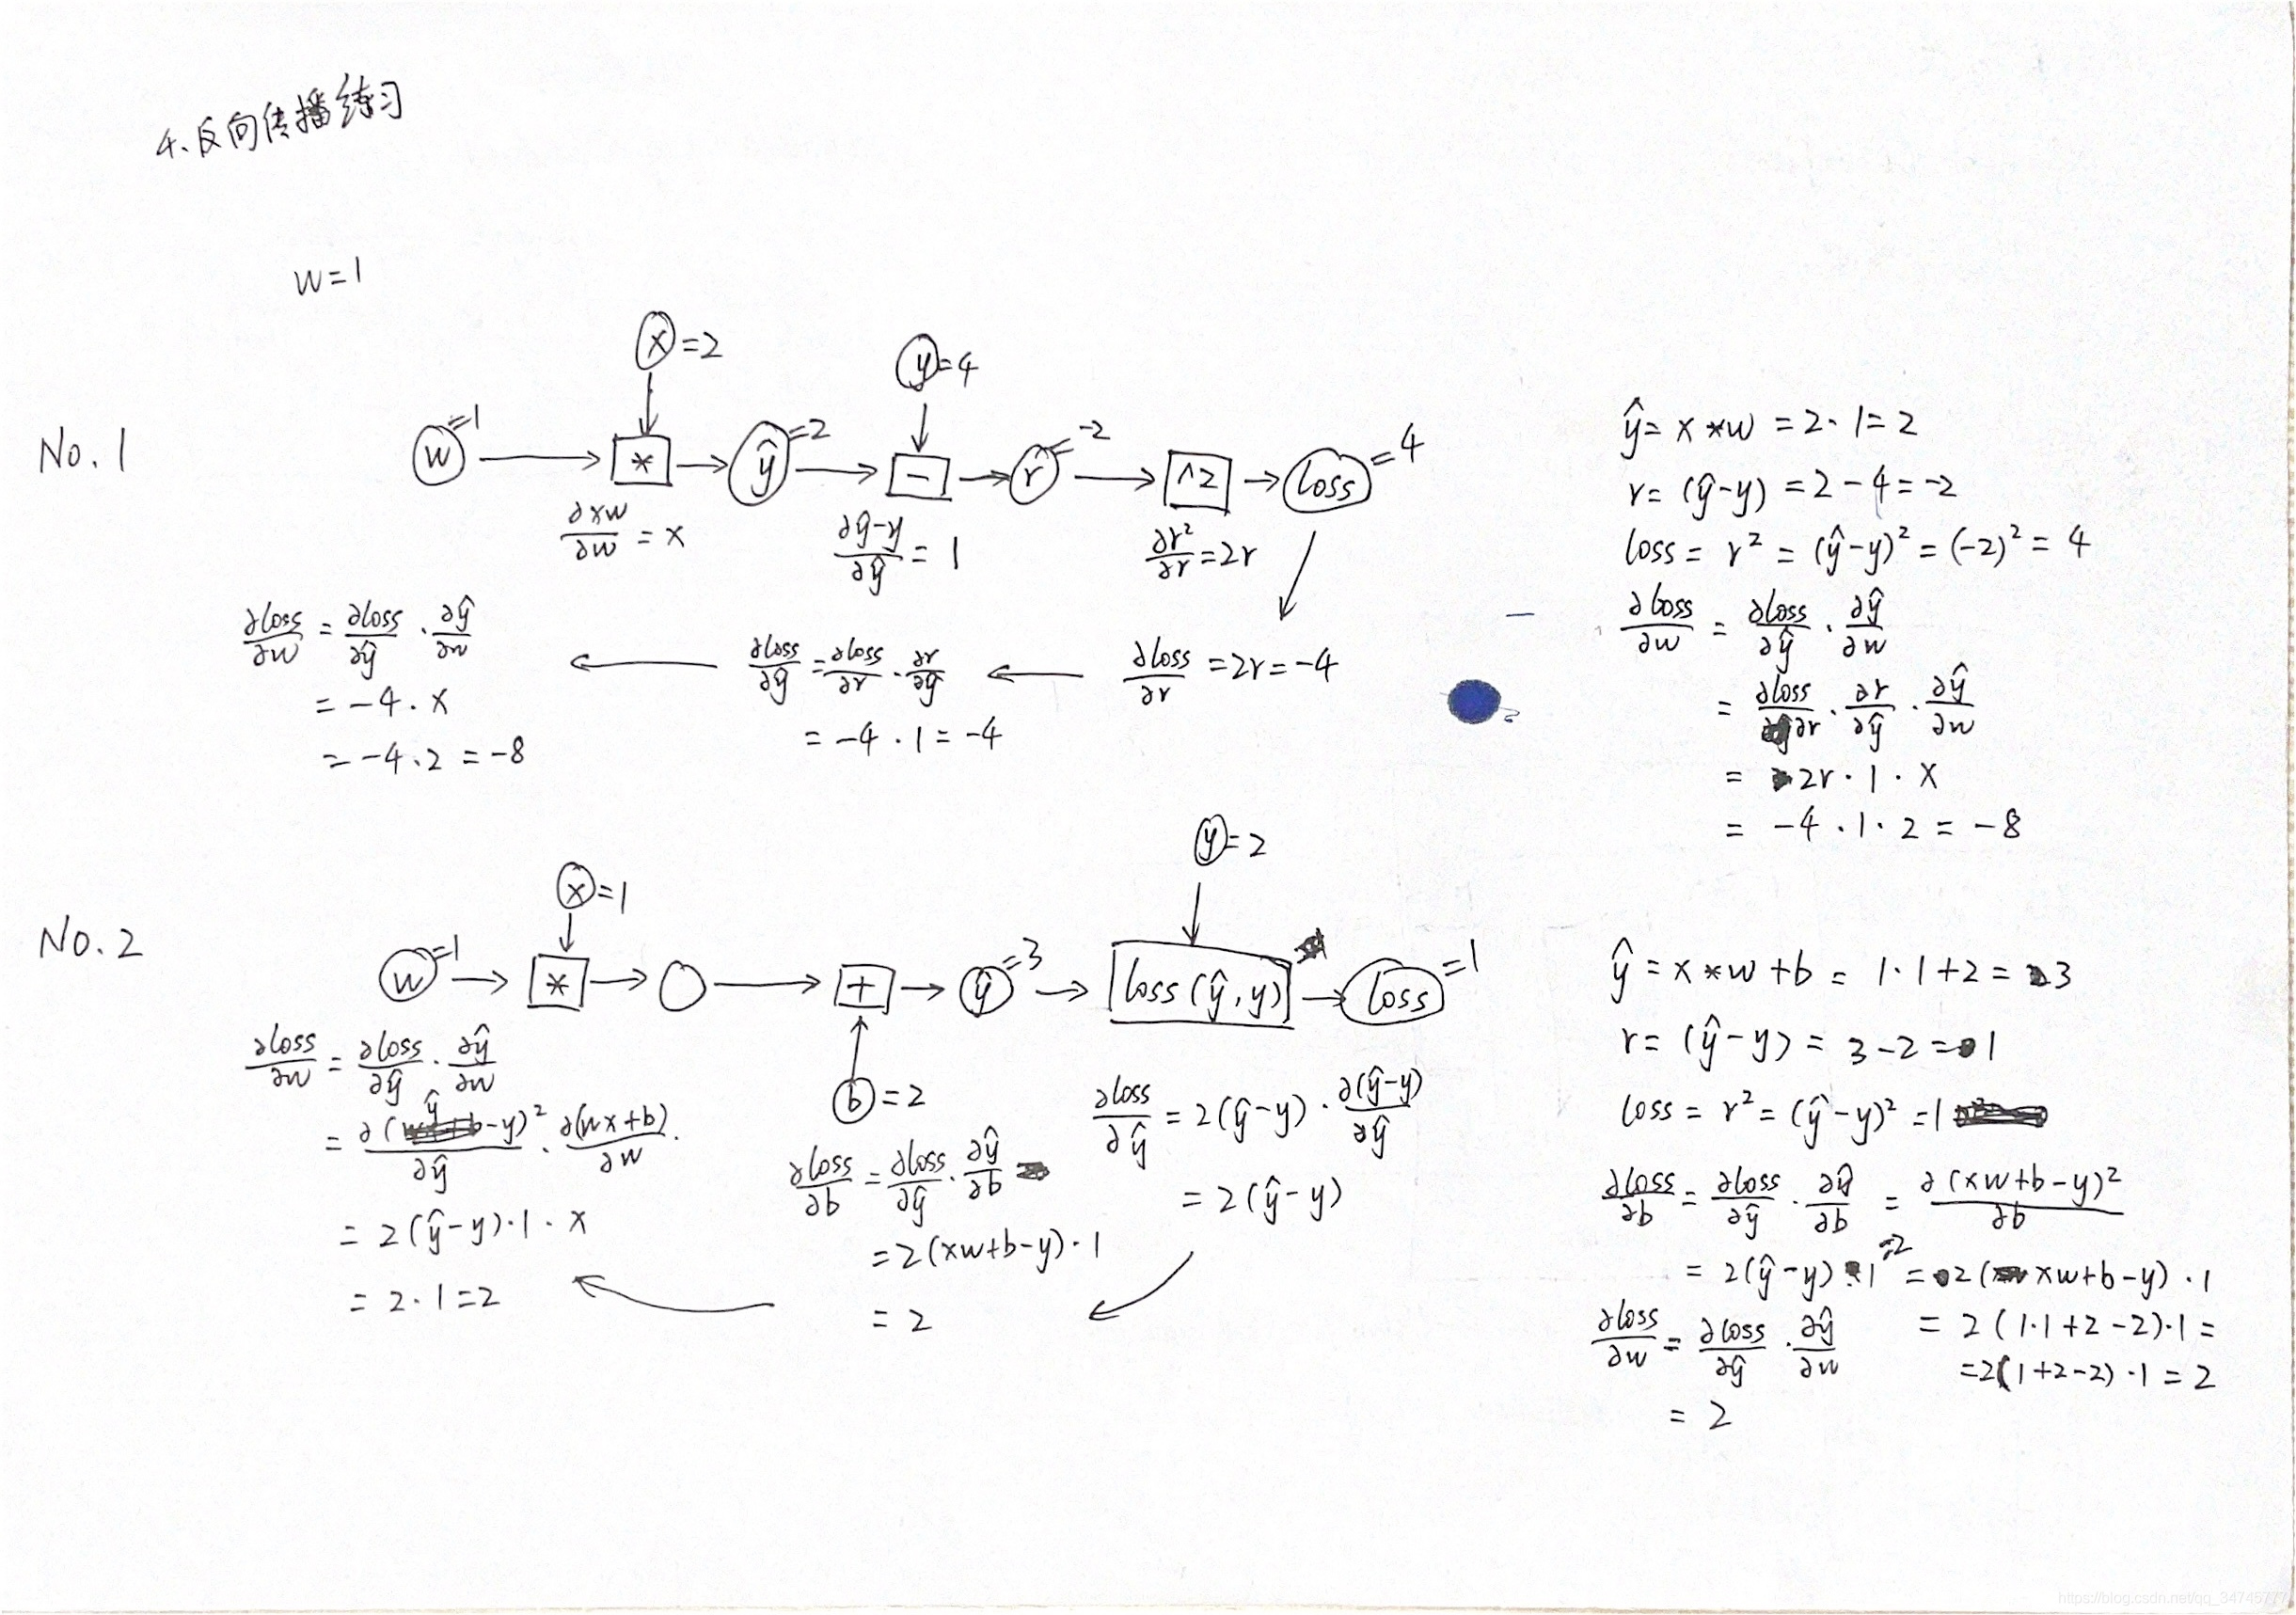 4.反向传播练习
w=1
No.1
x=2
y=4
w=1
*
ŷ=2
-
r=-2
^2
loss=4
∂xw/∂w = x
∂ŷ-y/∂ŷ = 1
∂r²/∂r = 2r
∂loss/∂w = ∂loss/∂ŷ · ∂ŷ/∂w
= -4 · x
= -4 · 2 = -8
∂loss/∂ŷ = ∂loss/∂r · ∂r/∂ŷ
= -4 · 1 = -4
∂loss/∂r = 2r = -4
ŷ = x * w = 2 · 1 = 2
r = (ŷ-y) = 2 - 4 = -2
loss = r² = (ŷ-y)² = (-2)² = 4
∂loss/∂w = ∂loss/∂ŷ · ∂ŷ/∂w
= ∂loss/∂r · ∂r/∂ŷ · ∂ŷ/∂w
= 2r · 1 · x
= -4 · 1 · 2 = -8
No.2
x=1
y=2
w=1
*
+
ŷ=3
loss(ŷ,y)
loss=1
b=2
∂loss/∂w = ∂loss/∂ŷ · ∂ŷ/∂w
= ∂(ŷ-y)²/∂ŷ · ∂(wx+b)/∂w.
= 2(ŷ-y) · 1 · x
= 2 · 1 = 2
∂loss/∂b = ∂loss/∂ŷ · ∂ŷ/∂b
= 2(xw+b-y) · 1
= 2
∂loss/∂ŷ = 2(ŷ-y) · ∂(ŷ-y)/∂ŷ
= 2(ŷ-y)
ŷ = x * w + b = 1 · 1 + 2 = 3
r = (ŷ-y) = 3 - 2 = 1
loss = r² = (ŷ-y)² = 1
∂loss/∂b = ∂loss/∂ŷ · ∂ŷ/∂b = ∂(xw+b-y)²/∂b
= 2(ŷ-y) · 1 =2 = 2(xw+b-y) · 1
= 2(1·1+2-2)·1 =
=2(1+2-2)·1 = 2
∂loss/∂w = ∂loss/∂ŷ · ∂ŷ/∂w
= 2